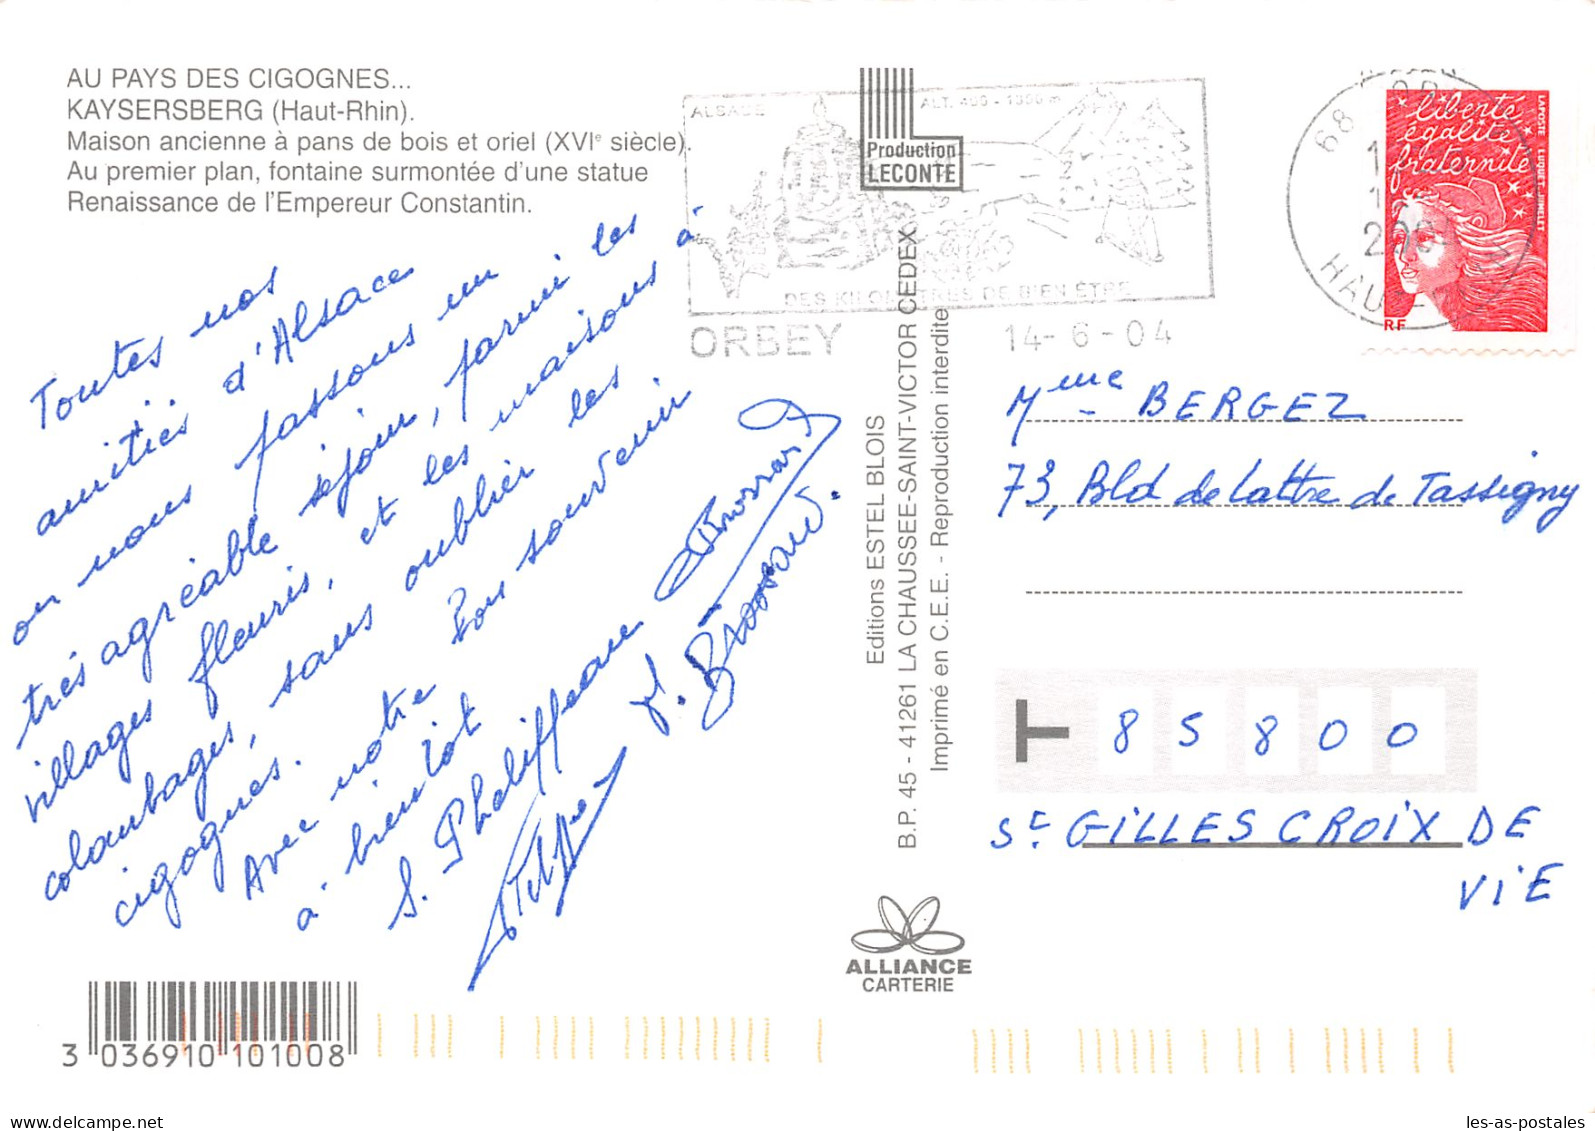 AU PAYS DES CIGOGNES...
KAYSERSBERG (Haut-Rhin).
Maison ancienne à pans de bois et oriel (XVIe siècle).
Au premier plan, fontaine surmontée d'une statue
Renaissance de l'Empereur Constantin.
Toutes nos
amitiés d'Alsace
ou nous passons un
très agréable séjour, parmi les
villages fleuris, et les maisons à
colombages, sans oublier les
cigognes.
Avec notre bon souvenir
à bientôt
S. Pheliffeau
Production
LECONTE
ALSACE
ALT. 400 - 1300 m
DES KILOMETRES DE BIEN ÊTRE
ORBEY
14-6-04
liberté
égalité
fraternité
RF
LA POSTE
Editions ESTEL BLOIS
B.P. 45 - 41261 LA CHAUSSEE-SAINT-VICTOR CEDEX
Imprimé en C.E.E. - Reproduction interdite
Mme BERGEZ
73, Bld de Lattre de Tassigny
85800
St GILLES CROIX DE
VIE
ALLIANCE
CARTERIE
3 036910 101008
delcampe.net
les-as-postales